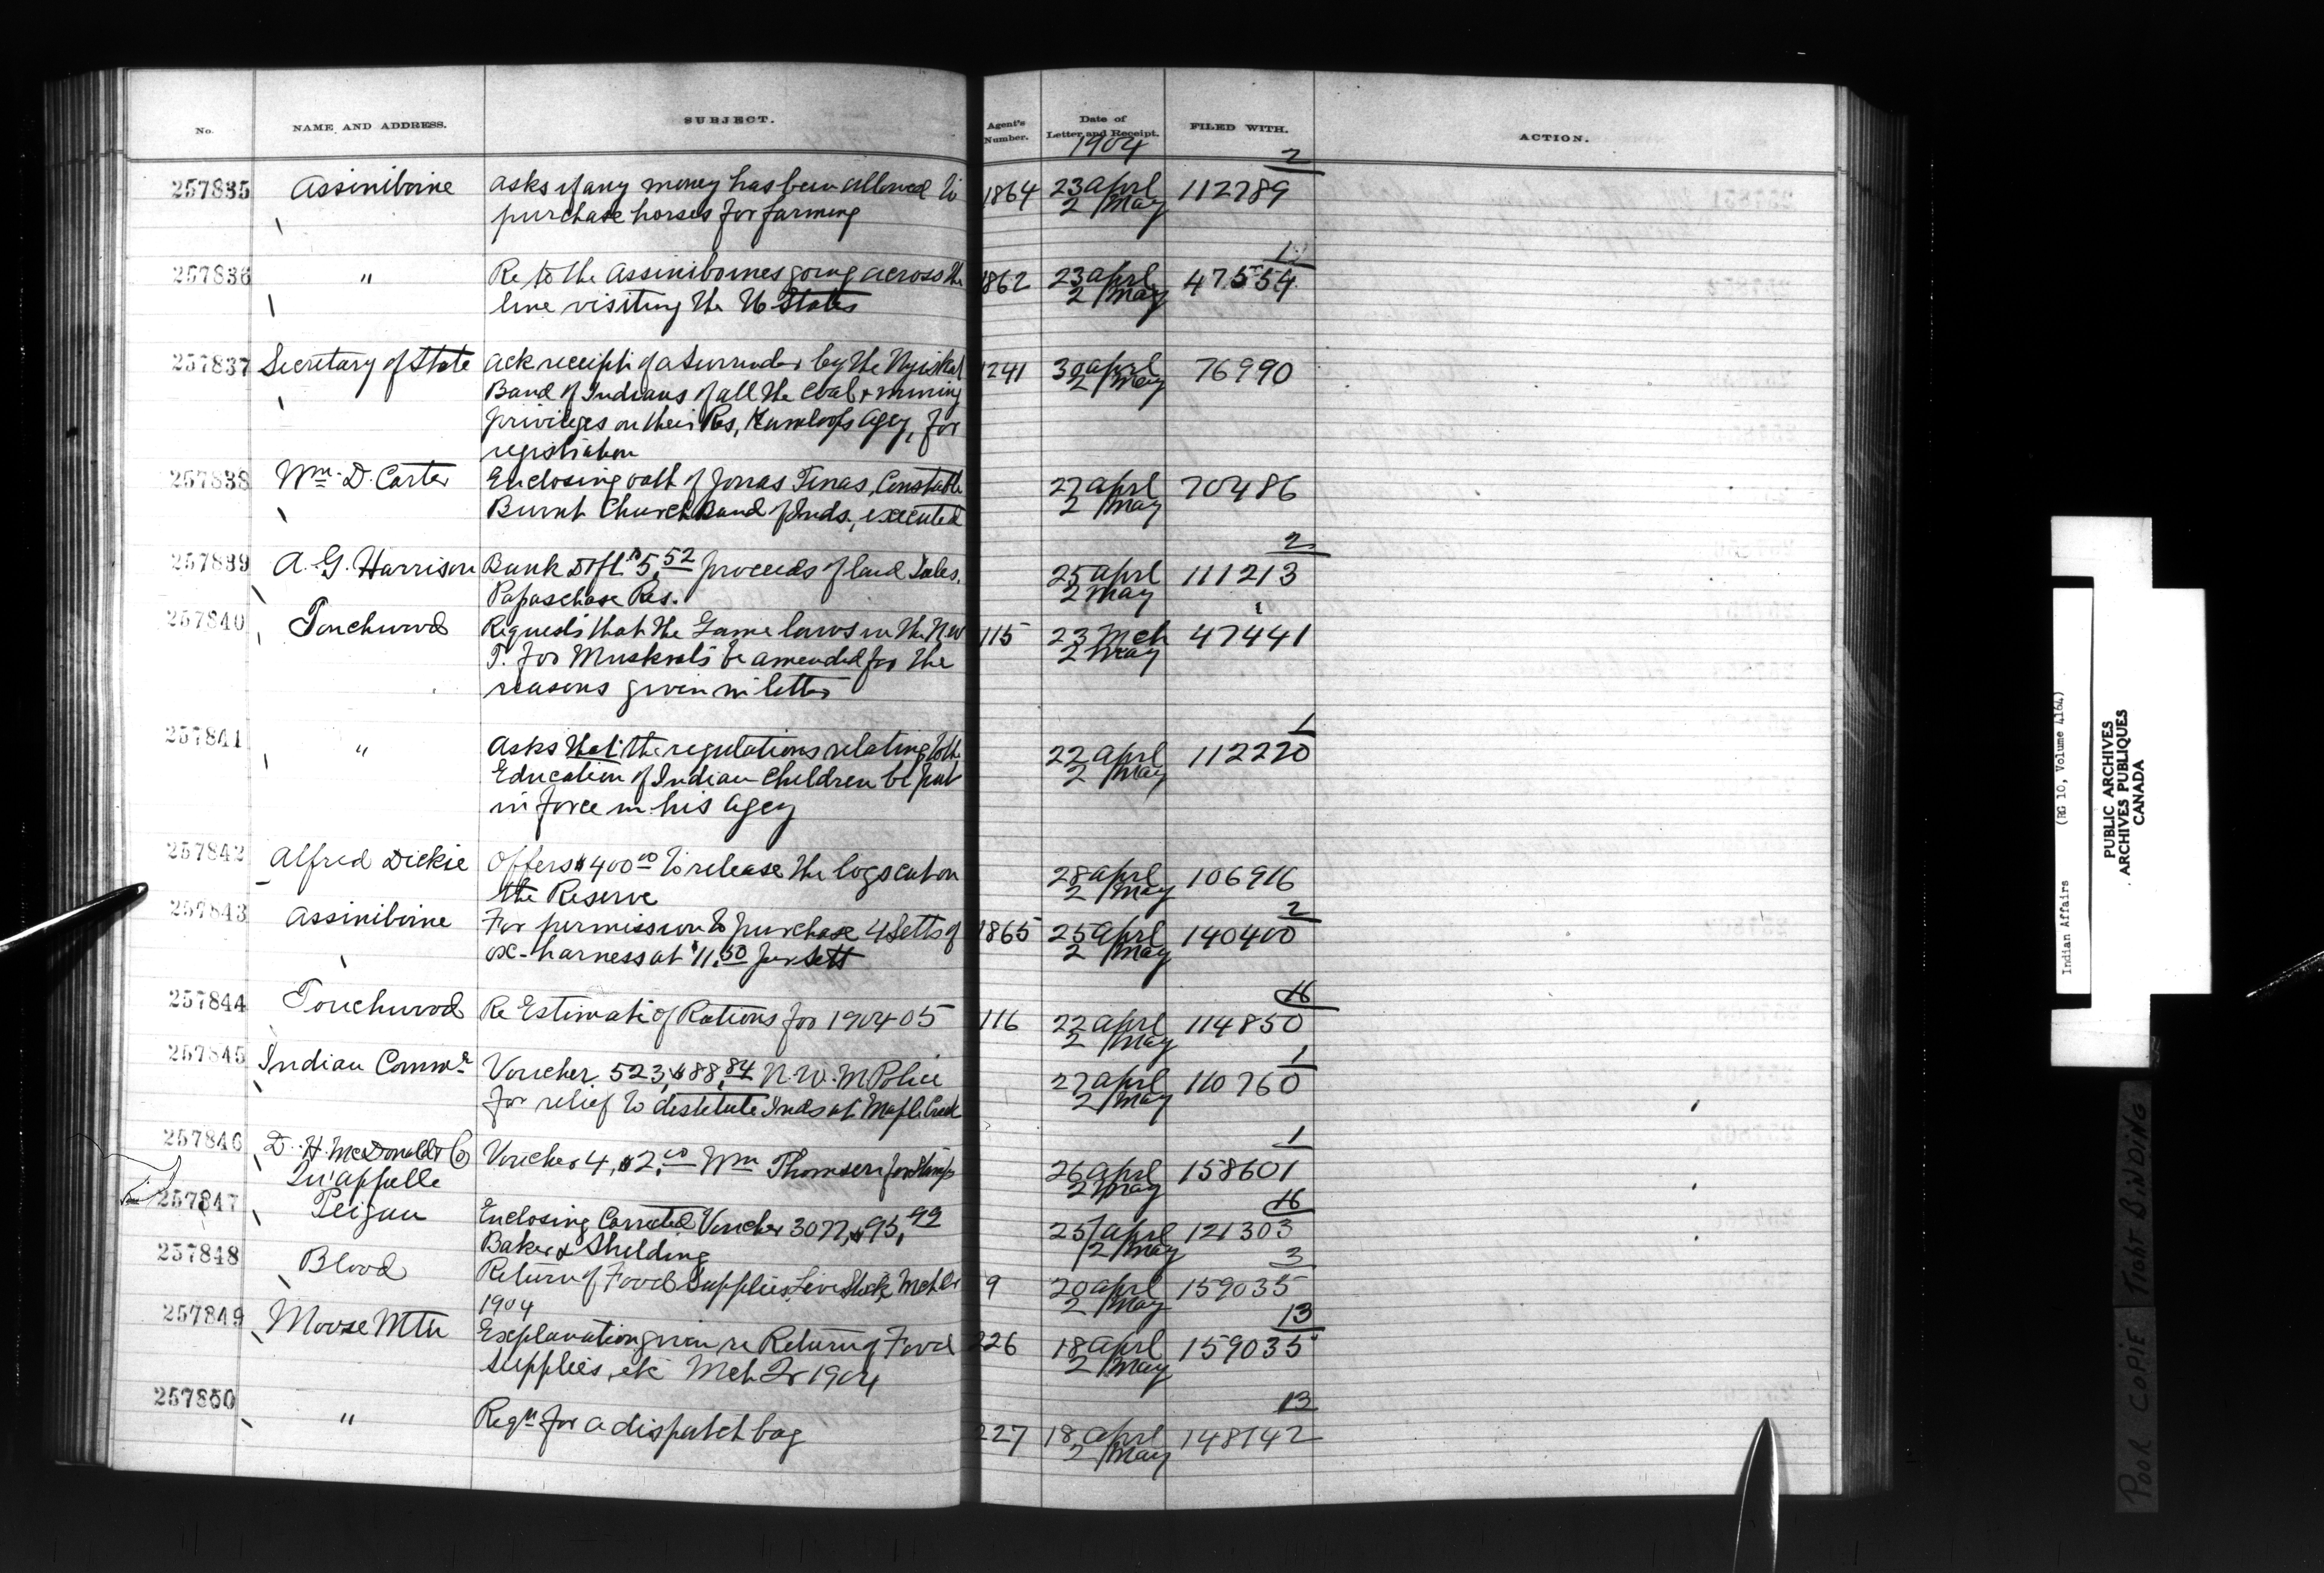 No. NAME AND ADDRESS. SUBJECT. Agent's Number. Date of Letter and Receipt. FILED WITH. ACTION.
1904
2
257835 Assiniboine Asks if any money has been allowed to 1864 23 aprl 112789
purchase horses for farming 2 May
257836 " Re to the Assiniboines going across the 1862 23 aprl 47554
line visiting the U States 2 May
257837 Secretary of State Ack receipt of a Surrender by the 1241 30 aprl 76990
Band of Indians of all the Coal & mining 2 May
privileges on their Res, Kamloops Agcy, for
registration
257838 Wm. D. Carter Enclosing oath of Jonas Tenas, Constable 27 aprl 70486
Burnt Church Band of Inds., executed 2 May
2
257839 A. G. Harrison Bank Dft $5.52 proceeds of land Sales. 25 aprl 111213
Papaschase Res. 2 May
1
257840 Touchwood Requests that the Game laws in the N W 115 23 Mch 47441
T. for Muskrats be amended for the 2 May
reasons given in letter
1
257841 " Asks that the regulations relating to the 22 aprl 112220
Education of Indian Children be put 2 May
in force in his Agcy
257842 Alfred Dickie Offers $400.00 to release the logs cut on 28 aprl 106916
the Reserve 2 May
2
257843 Assiniboine For permission to purchase 4 Setts of 1865 25 aprl 140400
ox-harness at $11.50 per Sett 2 May
16
257844 Touchwood Re Estimate of Rations for 1904 05 116 22 aprl 114850
2 May
1
257845 Indian Commr Voucher 523, $88.84 N.W.M Police 27 aprl 110760
for relief to destitute Inds at Maple Creek 2 May
1
257846 D. H. McDonald & Co Voucher 4, $2.00 Wm Thomson for Stamps 26 aprl 158601
Qu'appelle 2 May
16
257847 Peigan Enclosing Corrected Voucher 3077, $95.99 25 aprl 121303
Baker & 2 May
3
257848 Blood Return of Food Supplies, Live Stock, Mch Qr 9 20 aprl 159035
1904 2 May
13
257849 Moose Mtn Explanation given re Return of Food 226 18 aprl 159035
Supplies, etc Mch Qr 1904 2 May
13
257850 " Reqn for a dispatch bag 227 18 aprl 148142
2 May
Indian Affairs (RG 10, Volume 4164)
PUBLIC ARCHIVES
ARCHIVES PUBLIQUES
CANADA
POOR COPIE TIGHT BINDING